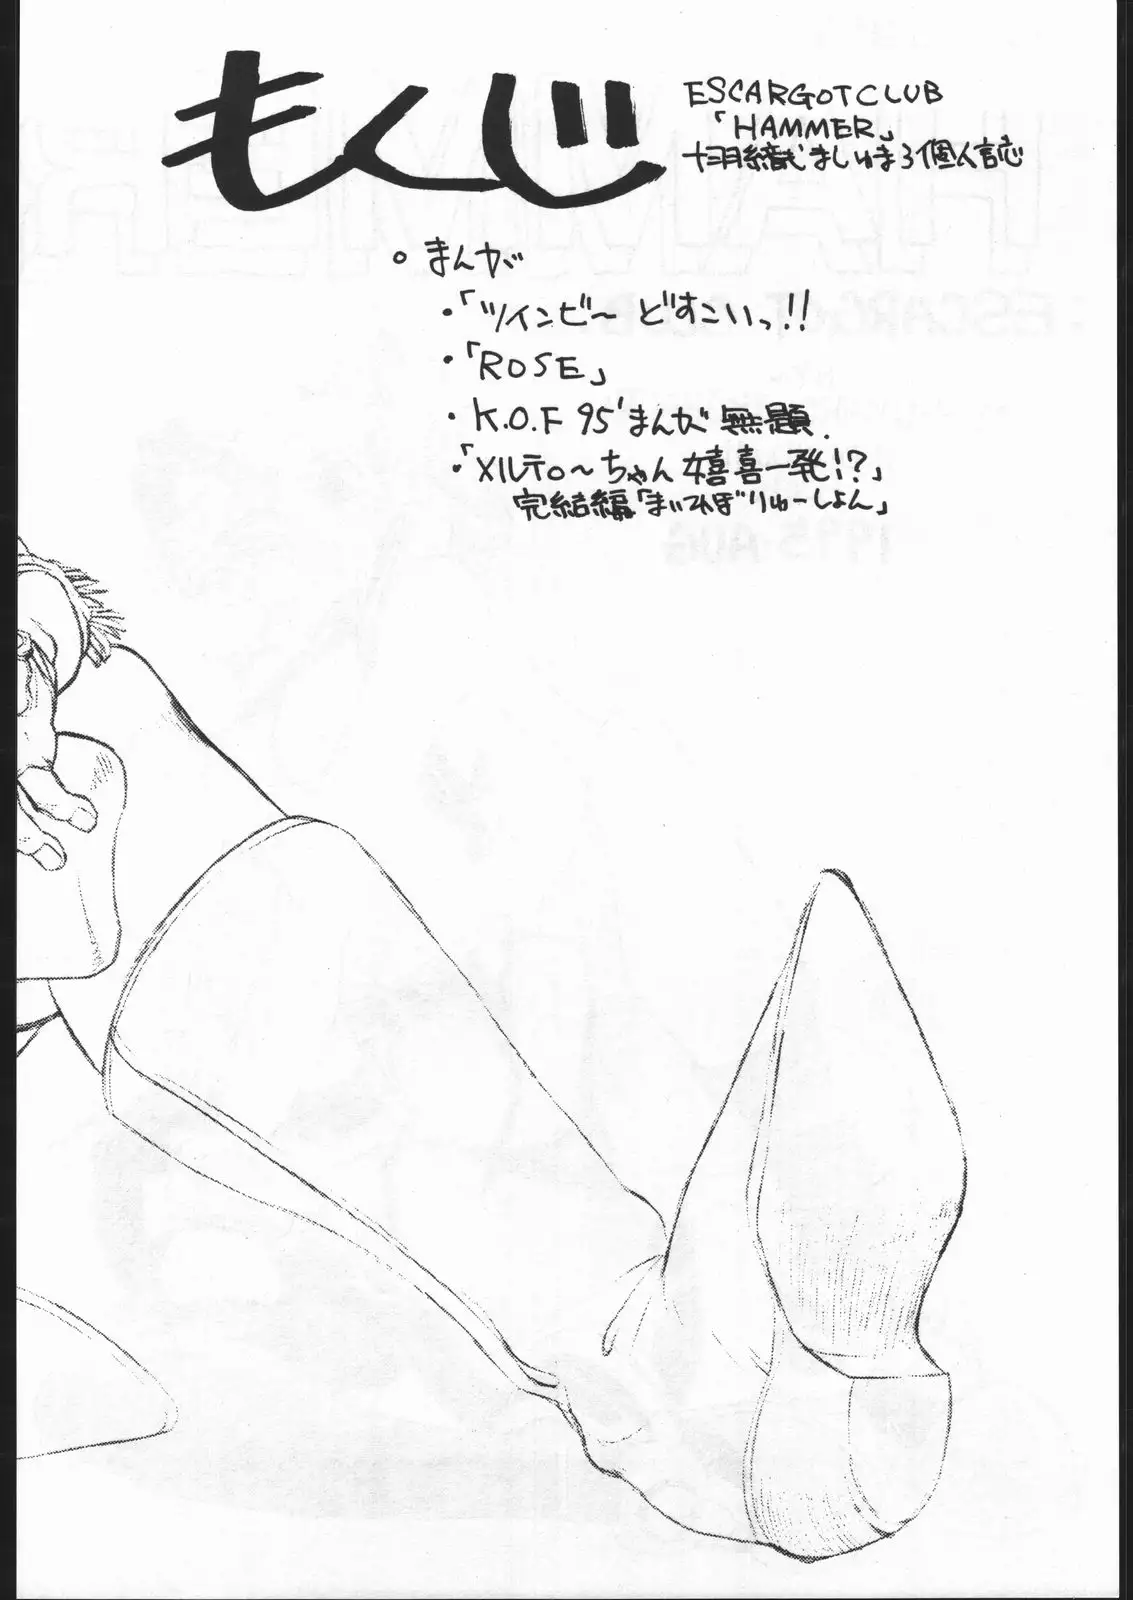 もくじ
ESCARGOTCLUB
「HAMMER」
ましゅまろ個人誌
○ まんが
・「ツインビ〜 どすこいっ!!
・「ROSE」
・K.O.F 95'まんが 無題.
・「メルティ〜ちゃん 嬉喜一発!?」
完結編「まいてぃぼりゅーしょん」